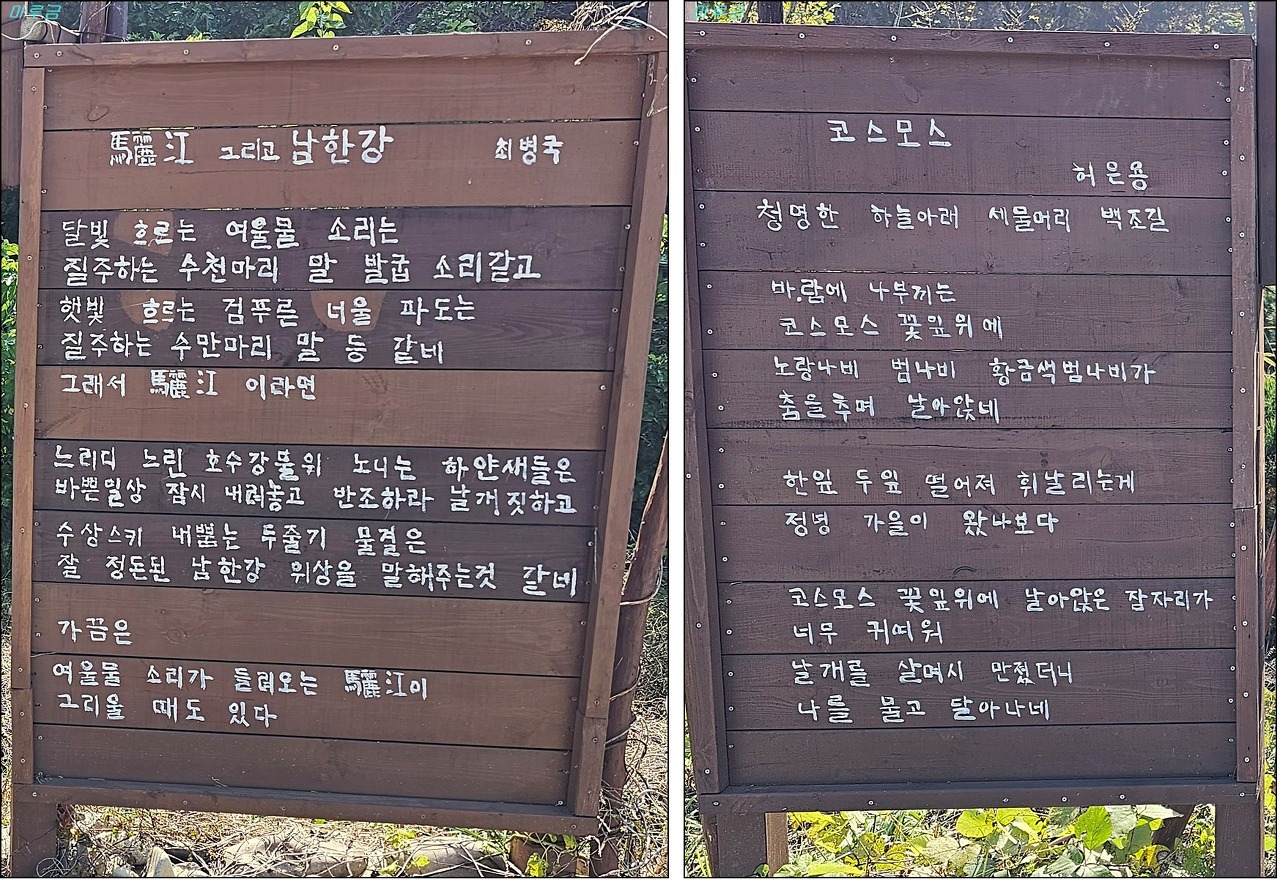 馬驪江 그리고 남한강 최병국
달빛 흐르는 여울물 소리는
질주하는 수천마리 말 발굽 소리같고
햇빛 흐르는 검푸른 너울 파도는
질주하는 수만마리 말 등 같네
그래서 馬驪江 이라면
느리디 느린 호수강물위 노니는 하얀새들은
바쁜일상 잠시 내려놓고 반조하라 날개짓하고
수상스키 내뿜는 두줄기 물결은
잘 정돈된 남한강 위상을 말해주는것 같네
가끔은
여울물 소리가 들려오는 馬驪江이
그리울 때도 있다
코스모스
허은용
청명한 하늘아래 세물머리 백조길
바람에 나부끼는
코스모스 꽃잎위에
노랑나비 범나비 황금색범나비가
춤을추며 날아앉네
한잎 두잎 떨어져 휘날리는게
정녕 가을이 왔나보다
코스모스 꽃잎위에 날아앉은 잠자리가
너무 귀여워
날개를 살며시 만졌더니
나를 물고 달아나네